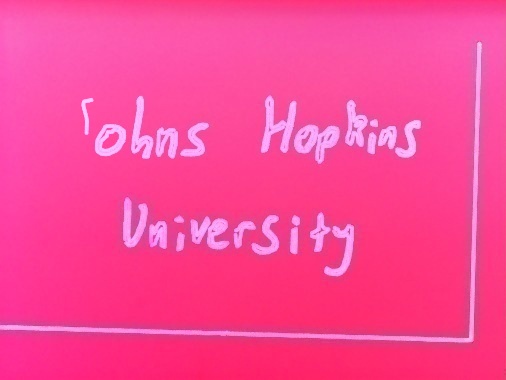 Johns Hopkins
University